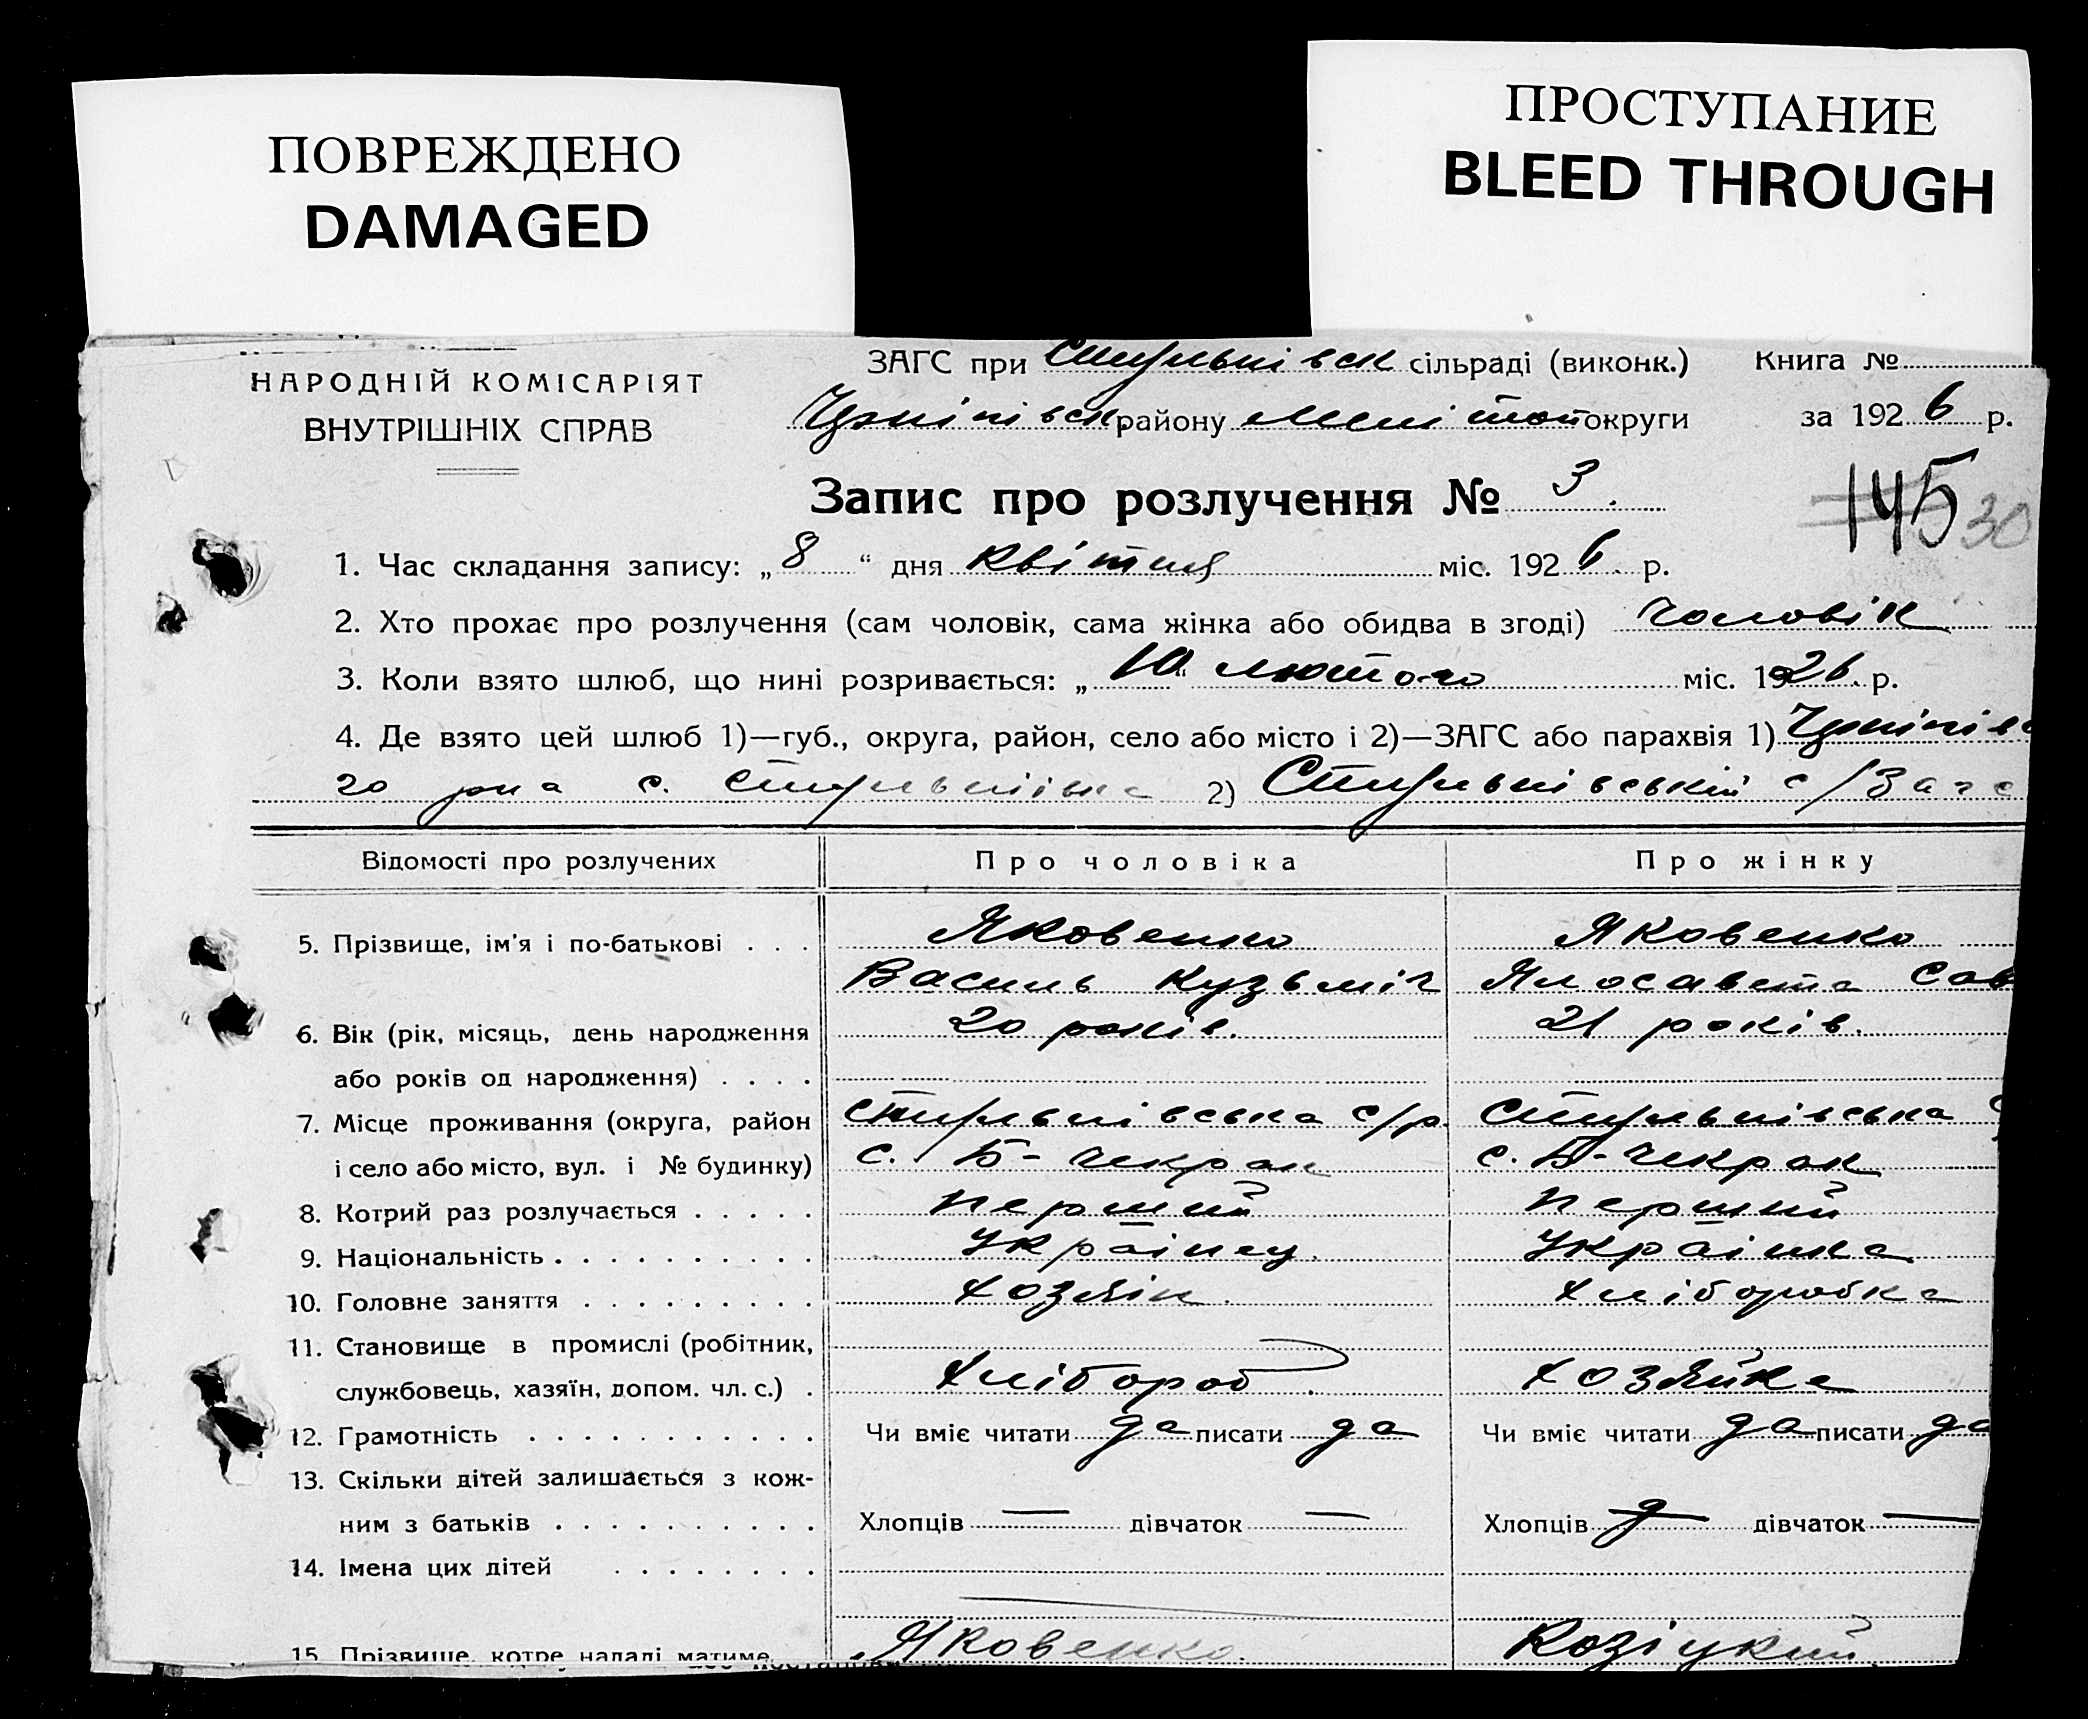 ПОВРЕЖДЕНО
DAMAGED
ПРОСТУПАНИЕ
BLEED THROUGH
НАРОДНІЙ КОМІСАРІЯТ
ВНУТРІШНІХ СПРАВ
ЗАГС при сільраді (виконк.) Книга №
району округи за 1926 р.
Запис про розлучення № 3.
145 30
1. Час складання запису: „8“ дня квітня міс. 1926 р.
2. Хто прохає про розлучення (сам чоловік, сама жінка або обидва в згоді) чоловік
3. Коли взято шлюб, що нині розривається: „10“ лютого міс. 1926 р.
4. Де взято цей шлюб 1)—губ., округа, район, село або місто і 2)—ЗАГС або парахвія 1)
го р-на с. 2) с/Загс
Відомості про розлучених Про чоловіка Про жінку
5. Прізвище, ім'я і по-батькові . . . Яковенко Яковенко
Василь Кузьміч Ялосавета Сав
6. Вік (рік, місяць, день народження 20 років. 21 років.
або років од народження) . . . .
7. Місце проживання (округа, район с/р.
і село або місто, вул. і № будинку) с. Б-Чекрак с. Б-Чекрак
8. Котрий раз розлучається . . . . . перший перший
9. Національність . . . . . . . . . . Українец. Українка
10. Головне заняття . . . . . . . . . хозяїн. хліборобка
11. Становище в промислі (робітник,
службовець, хазяїн, допом. чл. с.) . хлібороб. хозяйка
12. Грамотність . . . . . . . . . . . Чи вміє читати да писати да Чи вміє читати да писати да
13. Скільки дітей залишається з кож-
ним з батьків . . . . . . . . . . Хлопців — дівчаток — Хлопців — дівчаток —
14. Імена цих дітей . . . . . . .
15. Прізвище, котре надалі матиме Яковенко. Козіцкий.